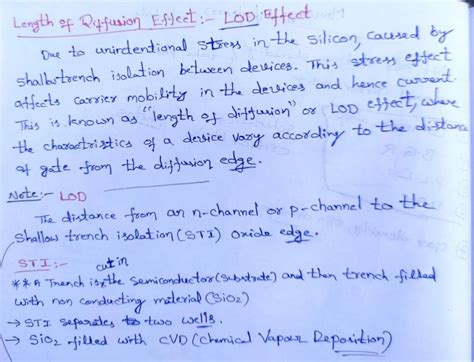 Length of Diffusion Effect:- LOD Effect
Due to unindentional stress in the Silicon, caused by
shallowtrench isolation between devices. This stress effect
affects carrier mobility in the devices and hence current.
This is known as "length of diffusion" or LOD effect, where
the charactristics of a device vary according to the distance
of gate from the diffusion edge.
Note:- LOD
The distance from an n-channel or p-channel to the
shallow trench isolation (STI) Oxide edge.
STI:-
cut in
** A Trench is the Semiconductor (Substrate) and then trench filled
with non conducting material (SiO2)
→ STI separates to two wells.
→ SiO2 filled with CVD (Chemical Vapour Deposition)